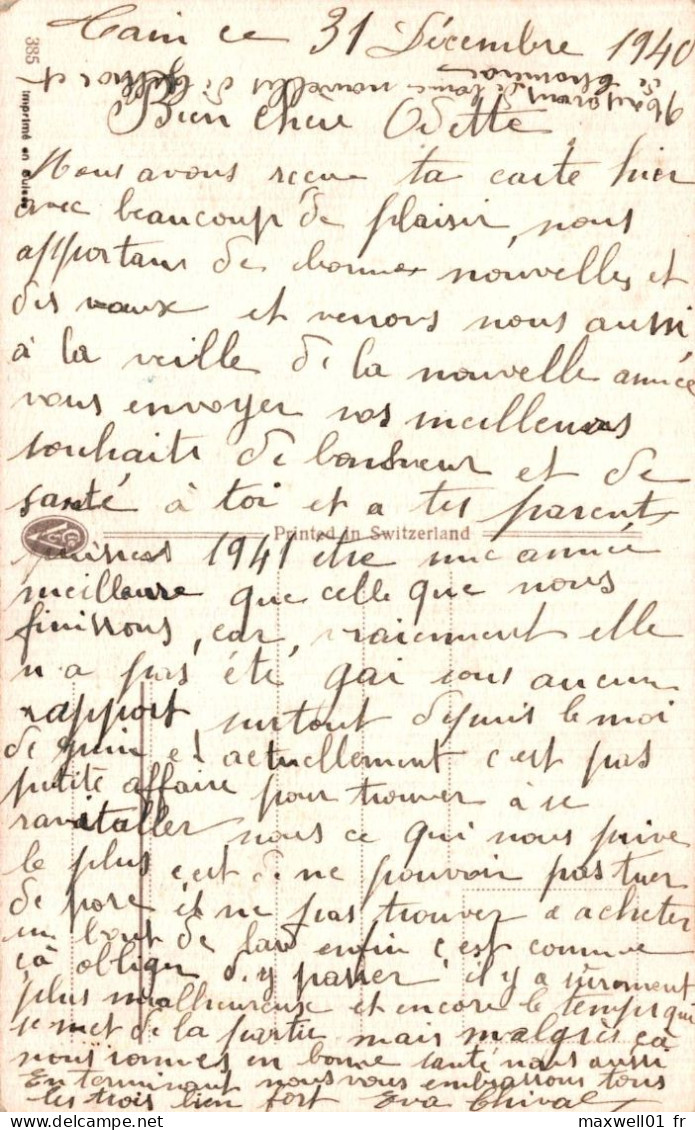 ce 31 Décembre 1940
nous avons de bonnes nouvelles de
Bien chere Odette
Nous avons reçue ta carte hier
avec beaucoup de plaisir, nous
apportans de bonnes nouvelles et
des vœux et venons nous aussi
à la veille de la nouvelle année
vous envoyer nos meilleurs
souhaits de bonheur et de
santé à toi et a tes parents
Printed in Switzerland
puisses 1941 être une année
meilleure que celle que nous
finissons, car, vraiement elle
n'a pas été gai sous aucun
rapport, surtout depuis le moi
de juin et actuellement c'est pas
petite affaire pour trouver à se
ravitailler nous ce qui nous prive
le plus c'est de ne pouvoir pas tuer
de porc et ne pas trouver a acheter
un bout de lard enfin c'est comme
çà obliger d'y passer il y a surement
plus malheureux et encore le temps qui
se met de la partie mais malgrès çà
nous sommes en bonne santé nous aussi
En terminant nous vous embrassons tous
les trois bien fort Eva Chival
385 Imprimé en Suisse
maxwell01 fr